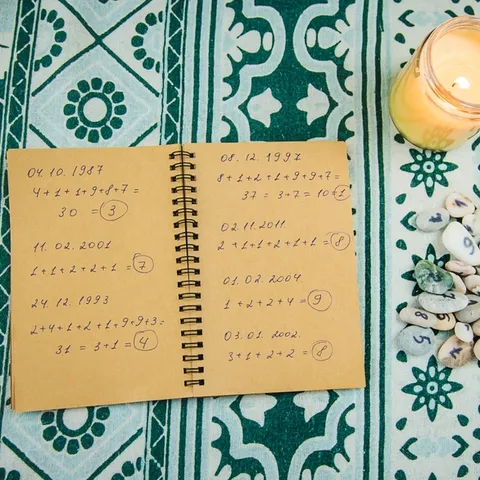 04.10.1987
4+1+1+9+8+7=
30 = 3
11.02.2001
1+1+2+2+1 = 7
24.12.1993
2+4+1+2+1+9+9+3=
31 = 3+1 = 4
08.12.1997
8+1+2+1+9+9+7=
37 = 3+7= 10=1
02.11.2011
2+1+1+2+1+1 = 8
01.02.2004
1+2+2+4 = 9
03.01.2002
3+1+2+2 = 8